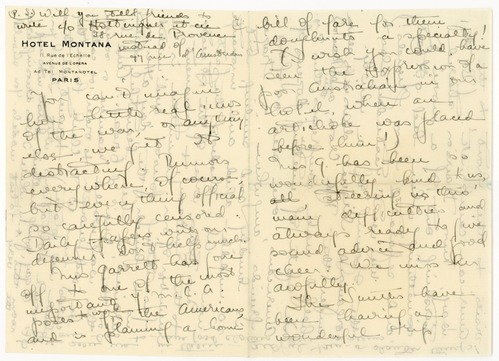 P.S. Will you tell friends to
write c/o Hottinguer et cie
38 rue de Provence
instead of
49 rue d'Amsterdam
HOTEL MONTANA
11 Rue de l'Echelle
AVENUE DE L'OPERA
AD. TEL. MONTANOTEL
PARIS
You can't imagine
how little real news
of the war, or anything
else we get. It's
distracting! Rumors
everywhere, of course,
but everything official
so carefully censored.
Daily papers with on
defense don't help much.
Miss Garrett has gone
off to one of the most
important Y.M.C.A.
posts to work the Americans
and is planning a home
bill of fare for them
doughnuts a specialty!
I wish you could have
seen the expression of a
poor Australian in our
hotel, when an
artichoke was placed
before him!
has been so
wonderfully kind to us,
all, steering us thro'
many difficulties and
always ready to give
sound advice and good
cheer. We miss her
awfully.
The have
been having a
wonderful trip